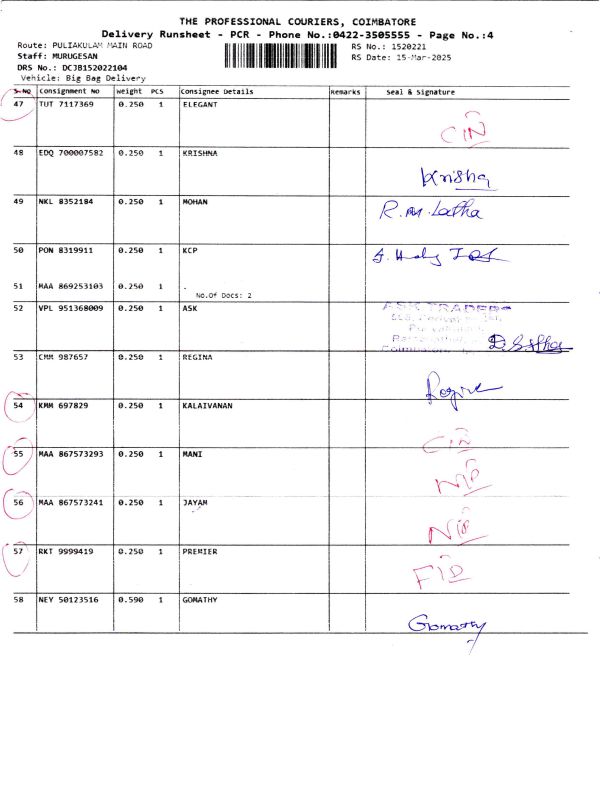 THE PROFESSIONAL COURIERS, COIMBATORE
Delivery Runsheet - PCR - Phone No.:0422-3505555 - Page No.:4
Route: PULIAKULAM MAIN ROAD
RS No.: 1520221
Staff: MURUGESAN
RS Date: 15-Mar-2025
DRS No.: DCJB152022104
Vehicle: Big Bag Delivery
S.NO Consignment No Weight PCS Consignee Details Remarks Seal & Signature
47 TUT 7117369 0.250 1 ELEGANT
CIN
48 EDQ 700007582 0.250 1 KRISHNA
Krishna
49 NKL 8352184 0.250 1 MOHAN
R. M. Latha
50 PON 8319911 0.250 1 KCP
51 MAA 869253103 0.250 1 .
No.Of Docs: 2
52 VPL 951368009 0.250 1 ASK
ASK TRADERS
53 CMM 987657 0.250 1 REGINA
Regina
54 KMM 697829 0.250 1 KALAIVANAN
CIN
55 MAA 867573293 0.250 1 MANI
NIP
56 MAA 867573241 0.250 1 JAYAM
NIP
57 RKT 9999419 0.250 1 PREMIER
FID
58 NEY 50123516 0.590 1 GOMATHY
Gomathy